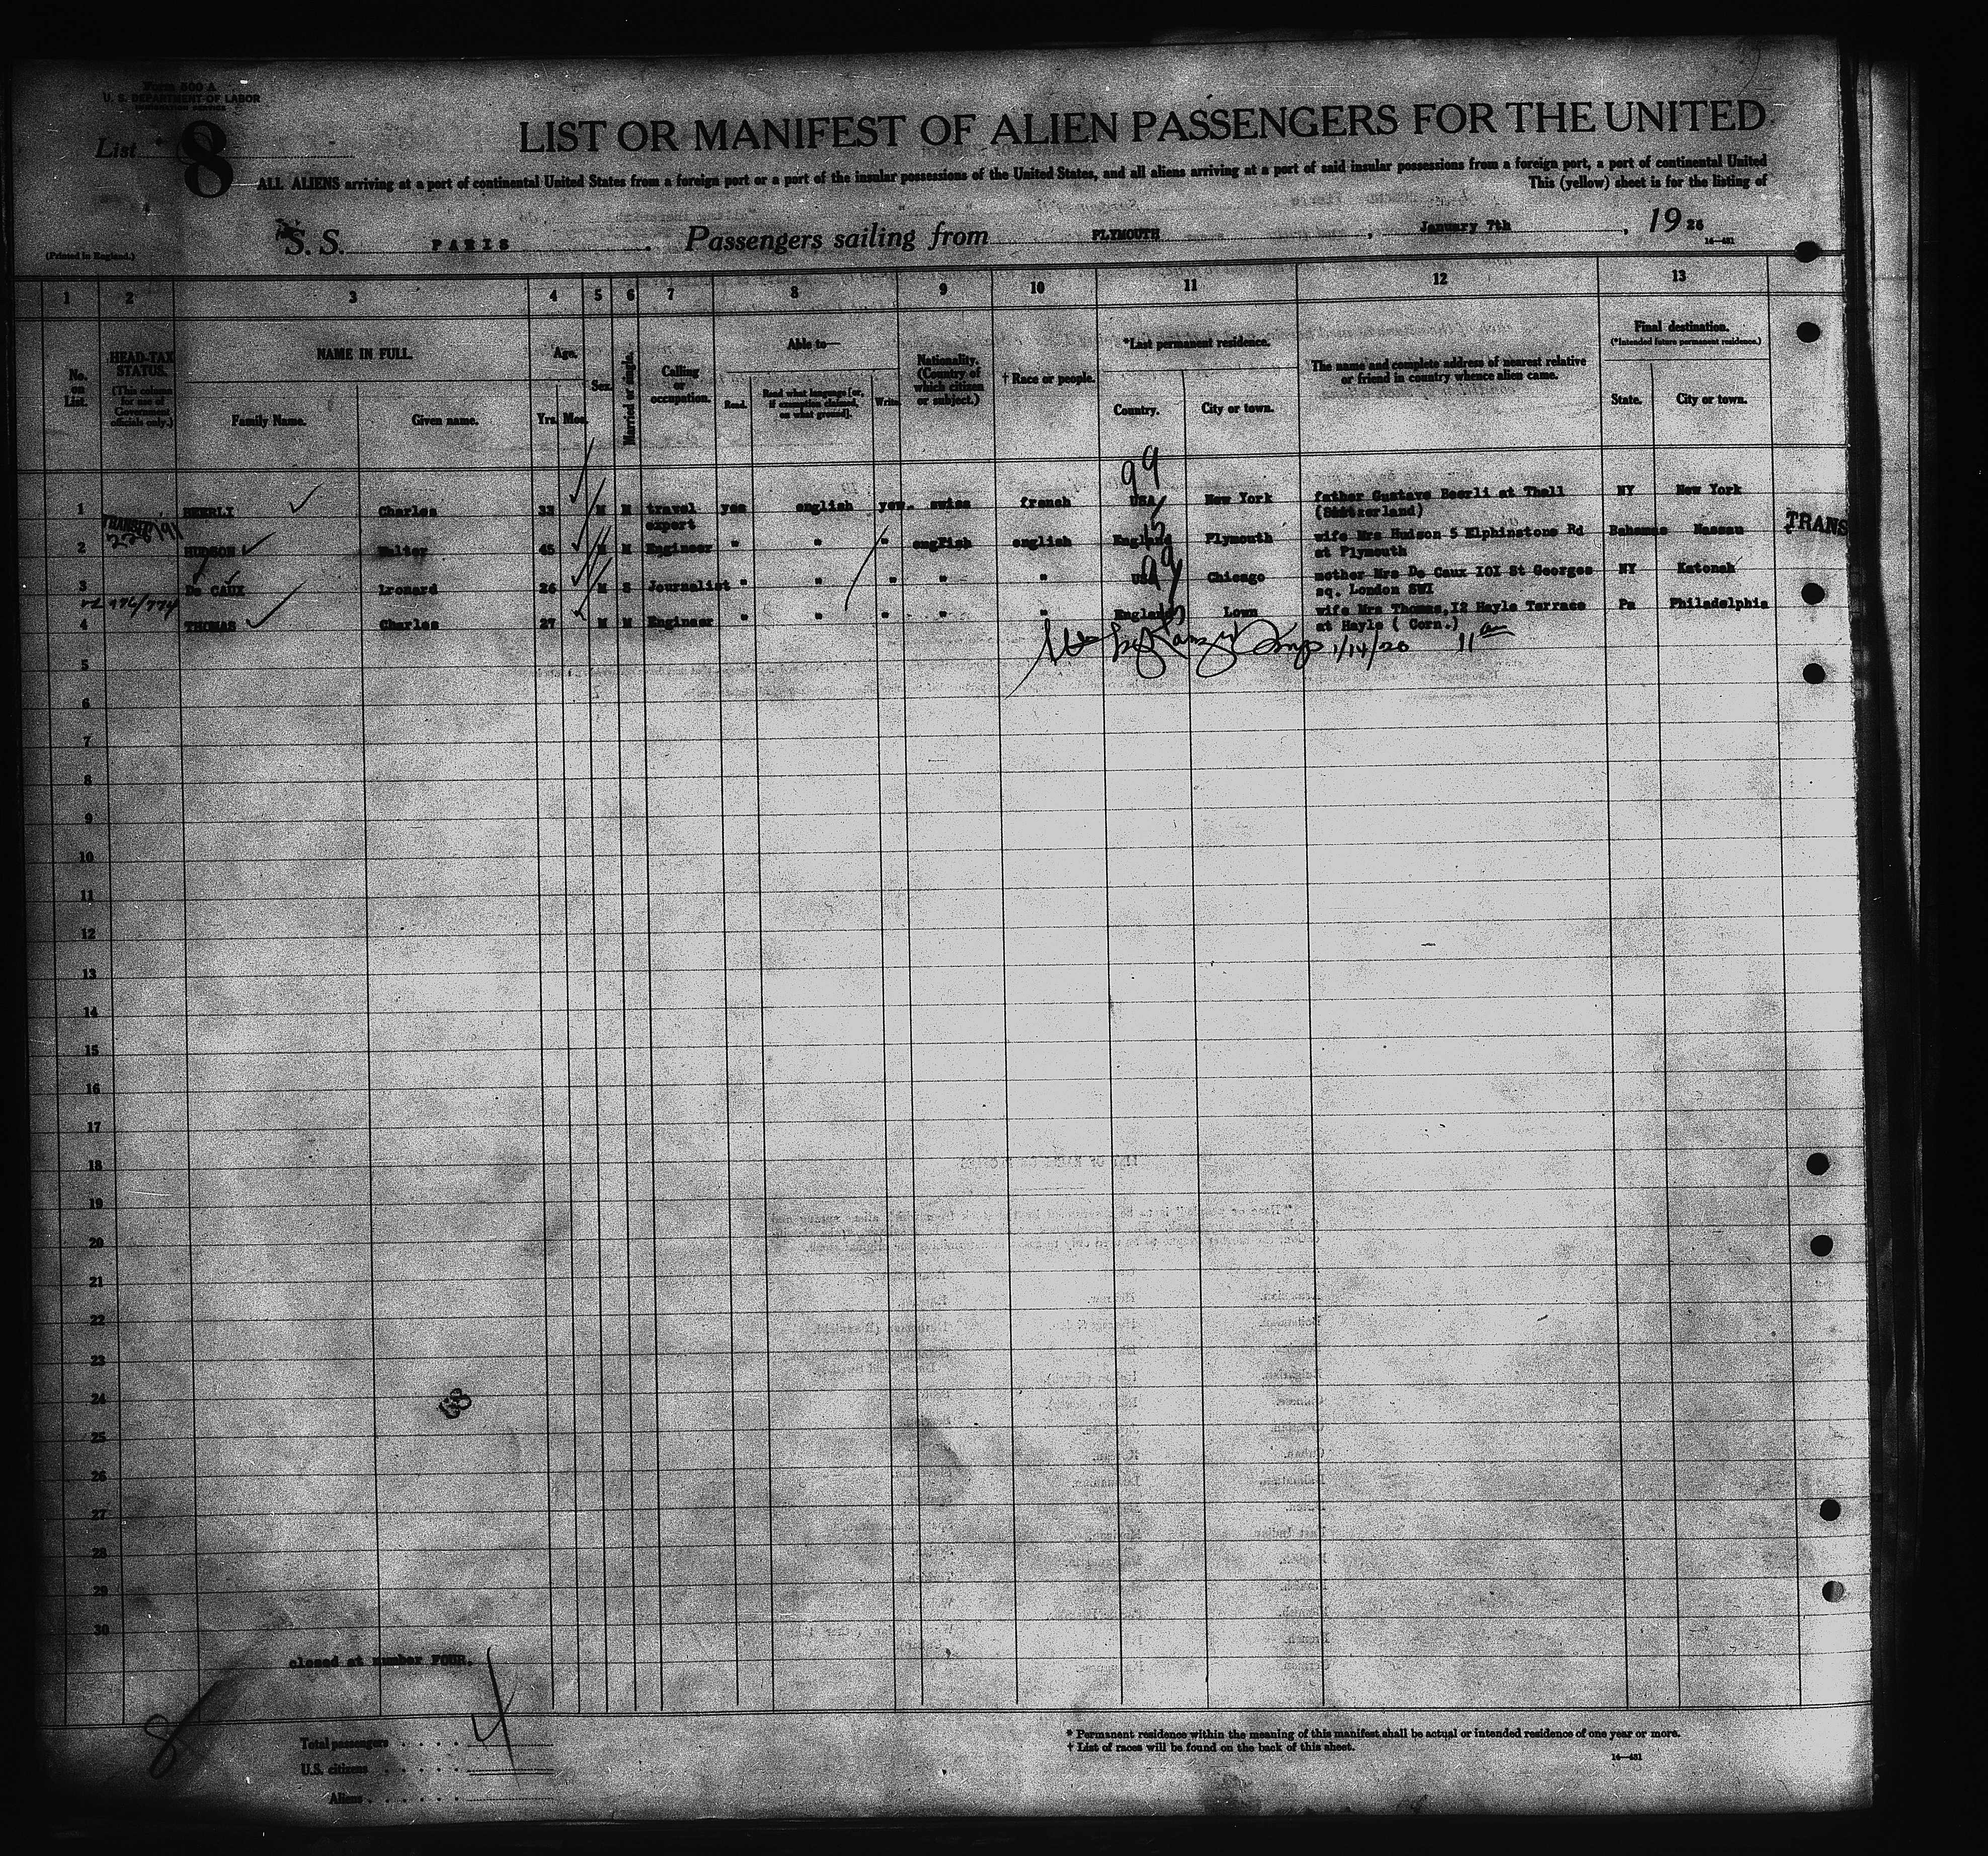 Form 500 A
U. S. DEPARTMENT OF LABOR
IMMIGRATION SERVICE
List 8
LIST OR MANIFEST OF ALIEN PASSENGERS FOR THE UNITED
ALL ALIENS arriving at a port of continental United States from a foreign port or a port of the insular possessions of the United States, and all aliens arriving at a port of said insular possessions from a foreign port, a port of continental United
This (yellow) sheet is for the listing of
S. S. PARIS Passengers sailing from PLYMOUTH, January 7th, 1926
(Printed in England.)
16—481
1 2 3 4 5 6 7 8 9 10 11 12 13
No. on List.
HEAD-TAX STATUS.
(This column for use of Government officials only.)
NAME IN FULL.
Family Name. Given name.
Age.
Yrs. Mos.
Sex.
Married or single.
Calling or occupation.
Able to—
Read. Read what language [or, if exemption claimed, on what ground]. Write.
Nationality. (Country of which citizen or subject.)
† Race or people.
*Last permanent residence.
Country. City or town.
The name and complete address of nearest relative or friend in country whence alien came.
Final destination.
(*Intended future permanent residence.)
State. City or town.
99
1 BEERLI Charles 33 M M travel yes english yes. swiss french USA New York father Gustave Beerli at Thall NY New York
expert (Switzerland)
TRANS
2 HUDSON Walter 45 M M Engineer " " " english english England Plymouth wife Mrs Hudson 5 Elphinstone Rd Bahamas Nassau
at Plymouth
3 De CAUX Leonard 26 M S Journalist " " " " " USA Chicago mother Mrs De Caux 101 St Georges NY Katonah
sq. London SW1
4 THOMAS Charles 27 M M Engineer " " " " " England wife Mrs Thomas, 12 Hayle Terrace Pa Philadelphia
at Hayle ( Corn.)
11 am
5
6
7
8
9
10
11
12
13
14
15
16
17
18
19
20
21
22
23
24
25
26
27
28
29
30
closed at number FOUR.
8
Total passengers 4
U.S. citizens
Aliens
* Permanent residence within the meaning of this manifest shall be actual or intended residence of one year or more.
† List of races will be found on the back of this sheet.
16—481